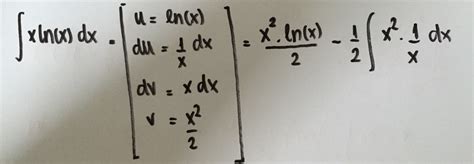 ∫x ln(x) dx = [ u = ln(x) du = 1/x dx dv = x dx v = x²/2 ] = x² · ln(x)/2 - 1/2 ∫ x² · 1/x dx